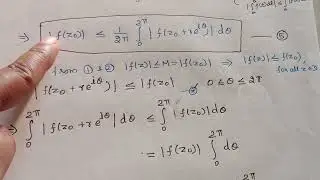 ⇒ |f(z₀)| ≤ 1/2π ∫₀^2π |f(z₀+re^iθ)| dθ — ⑤
from ① & ② |f(z)| ≤ M = |f(z₀)| ⇒ |f(z)| ≤ f(z₀)
for all z
|f(z₀+re^iθ)| ≤ |f(z₀)| 0 ≤ θ ≤ 2π
⇒ ∫₀^2π |f(z₀+re^iθ| dθ ≤ ∫₀^2π |f(z₀)| dθ
= |f(z₀)| ∫₀^2π dθ